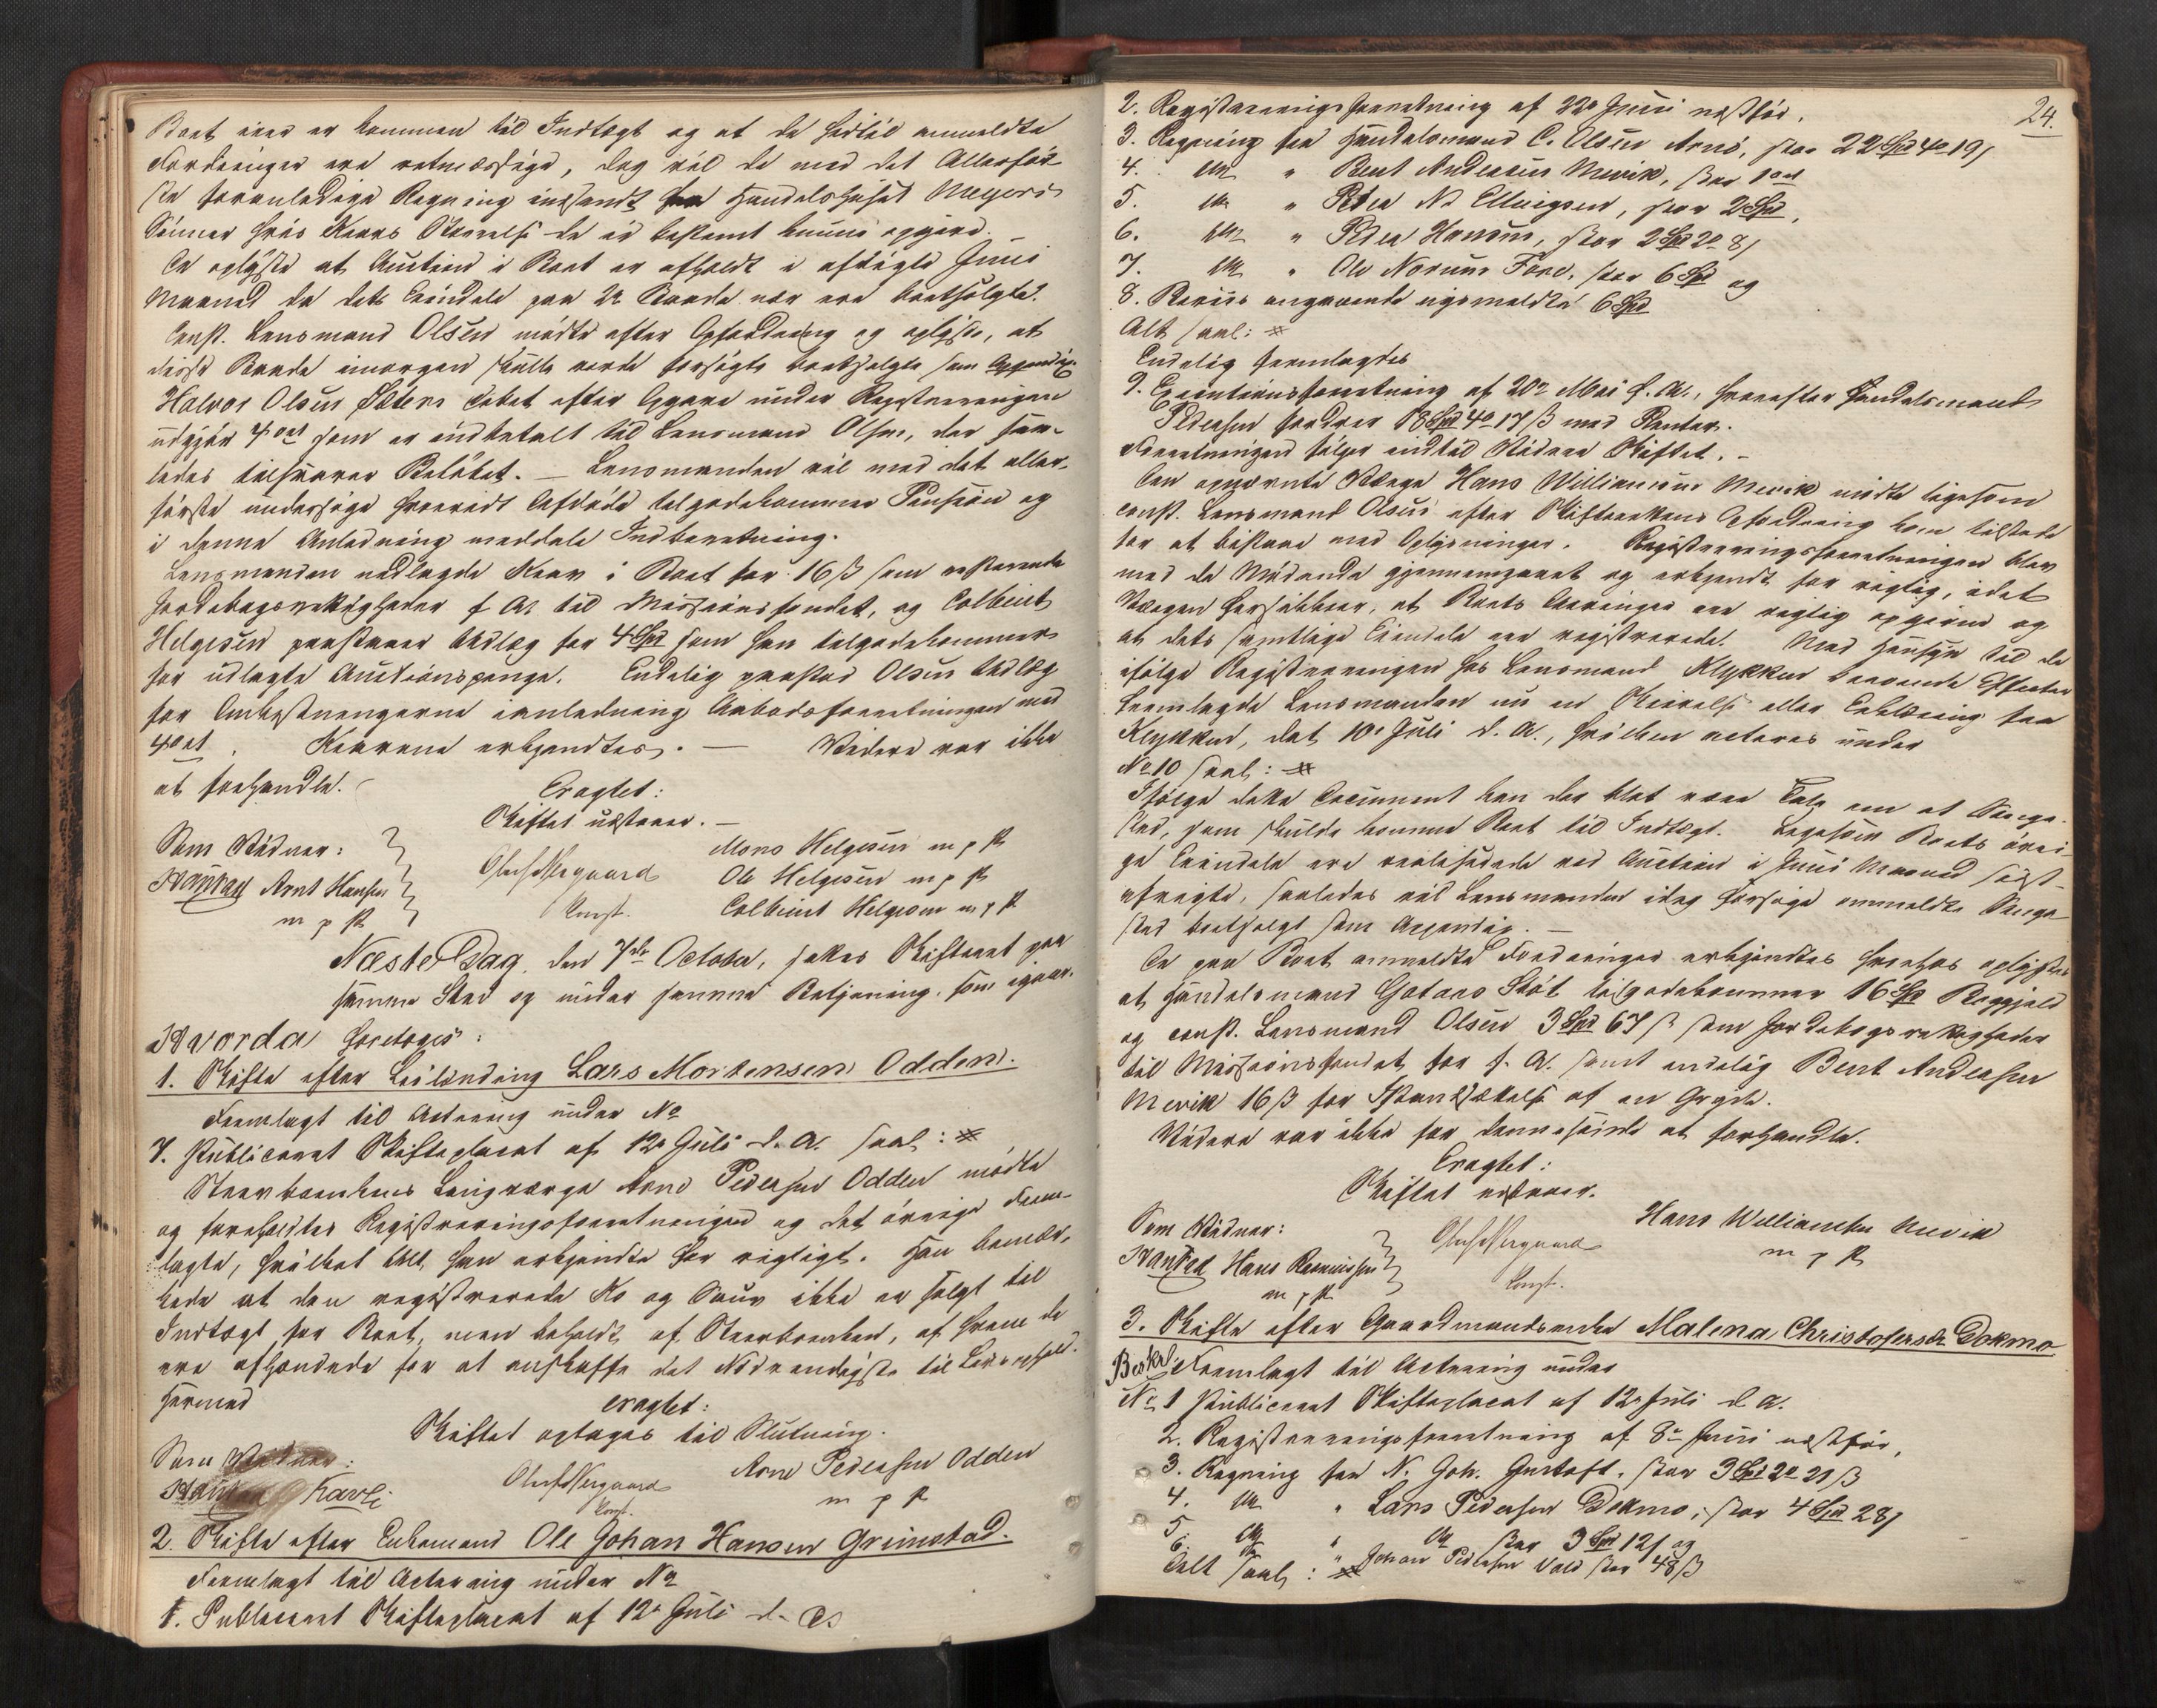 Boet ikke er kommen til Indtægt og at de hertil anmeldte
Fordringer ere retmæssige, dog vil de med det Allerfør-
ste foranledige Regning indsendt fra Handelshuset Meyers
Sønner
De oplyste at Auction i Boet er afholdt i afvigte Juni
Maaned da dets Eiendele paa 2 Baade nær ere bortsolgte.
Const. Lensmand Olsen mødte efter Opfordring og oplyste, at
disse Baade imorgen skulle vorde forsøgte bortsolgte som
Halvor Olsen debet efter Opgave under Registreringen
udgjør 4 ort som er indbetalt til Lensmand Olsen, der saa-
ledes tilsvarer Beløbet. — Lensmanden vil med det aller-
første undersøge hvorvidt Afdøde tilgodekommer Pension og
i denne Anledning meddele Indberetning.
Lensmanden nedlagde Krav i Boet for 16 β som resterende
Jordebogsrettigheder f. A. til Missionsfondet, og Colbent
Helgesen paastaaer Udlæg for 4 Spd som han tilgodekommer
for udlagte Auctionspenge. Endelig paastod Olsen Udlæg
for
4 ort. Kravene erkjendtes. — Videre var ikke
at forhandle.
Eragtet:
Skiftet udstaaer. —
Som Vidner:
Arnt Hansen
m p P
Const.
Mons Helgesen m p P
Ole Helgesen m p P
Colbent Helgesen m p P
Næste Dag, den 7de October, sattes Skifteret paa
samme Sted og under samme Betjening, som igaar.
Hvorda foretoges:
1. Skifte efter Leilænding Lars Mortensen Odden.
Fremlagt til Actering under No
7. Publiceret Skifteplacat af 12e Juli d. A. saal:
Stervboenkens Laugværge Arne Pedersen Odden mødte
og foreholdtes Registreringsforretningen og det øvrige Frem-
lagte, hvilket Alt han erkjendte for rigtigt. Han bemær-
kede at den registrerede Ko og Sauer ikke er solgt til
Indtægt for Boet, men beholdt af Stervboenken, af hvem de
ere afhændede for at anskaffe det Nødvendigste til
Hermed
eragtet:
Skiftet optages til Slutning.
Som Vidner:
Const.
Arne Pedersen Odden
m p P
2. Skifte efter Enkemand Ole Johan Hansen Grimstad.
Fremlagt til Actering under No
1. Publiceret Skifteplacat af 12e Juli d. A.
24.
2. Registreringsforretning af 22e Juni næstfør.
3. Regning fra Handelsmand C. Olsen Arnö, stor 22 Spd 4 o 19 β
4. do " Bent Andersen Mevik, stor 1 ort
5. do " Peder N. Ellingsen, stor 2 Spd,
6. do " Peder Hansen, stor 2 Spd 2 o 8 β
7. do " Ole Norum Fore, stor 6 Spd og
8. angaaende 6 Spd
Alt saal:
Endelig fremlagdes
9. Executionsforretning af 20e Mai f. A., hvorefter Handelsmand
Pedersen fordrer 18 Spd 4 o 17 β med Renter.
Forretningen følger indtil Videre Skiftet. –
Den opnævnte Værge Hans Williamsen Mevik mødte ligesom
const. Lensmand Olsen efter Skifterettens Opfordring kom tilstede
for at bistaae med Oplysninger. Registreringsforretningen blev
med de Mødende gjennemgaaet og erkjendt for rigtig, idet
Værgen forsikkrer, at Boets Arvinger ere rigtig opgivne og
at dets samtlige Eiendele ere registrerede. Med Hensyn til de
ifølge Registreringen hos Lensmand Klykken beroende Effecter
fremlagde Lensmanden nu en Skrivelse eller Erklæring fra
Klykken, dat. 10e Juli d. A., hvilken acteres under
No 10 saal:
Ifølge dette Document kan der blot være Tale om et Senge-
sted, som skulde komme Boet til Indtægt. Ligesom Boets øvri-
ge Eiendele ere realiserede ved Auction i Juni Maaned sidst-
afvigte, saaledes vil Lensmanden idag forsøge anmeldte Senge-
sted bortsolgt
De paa Boet anmeldte Fordringer erkjendtes hvorhos oplystes
at Handelsmand Gotaas Støt tilgodekommer 16 Spd
og const. Lensmand Olsen 3 Spd 67 β som Jordebogsrettigheder
til Missionsfondet for f. A. samt endelig Bent Andersen
Mevik 16 β for Istandsættelse af en Gryde.
Videre var ikke for dennesinde at forhandle.
Eragtet:
Skiftet udstaaer.
Som Vidner:
Hans Rasmussen
m p P
Const.
Hans Williamsen Mevik
m p P
3. Skifte efter Gaardmandsenke Malena Christofersdr Dokmo
Fremlagt til Actering under
No 1 Publiceret Skifteplacat af 12e Juli d. A.
2. Registreringsforretning af 8e Juni næstfør,
3. Regning fra N. Joh. Gustafs. stor 3 Spd 2 o 21 β
4. do " Lars Pedersen Dokmo, stor 4 Spd 28 β
5. do " do stor 3 Spd 12 β og
6. do " Johan Pedersen Vold stor 48 β
Alt saal: